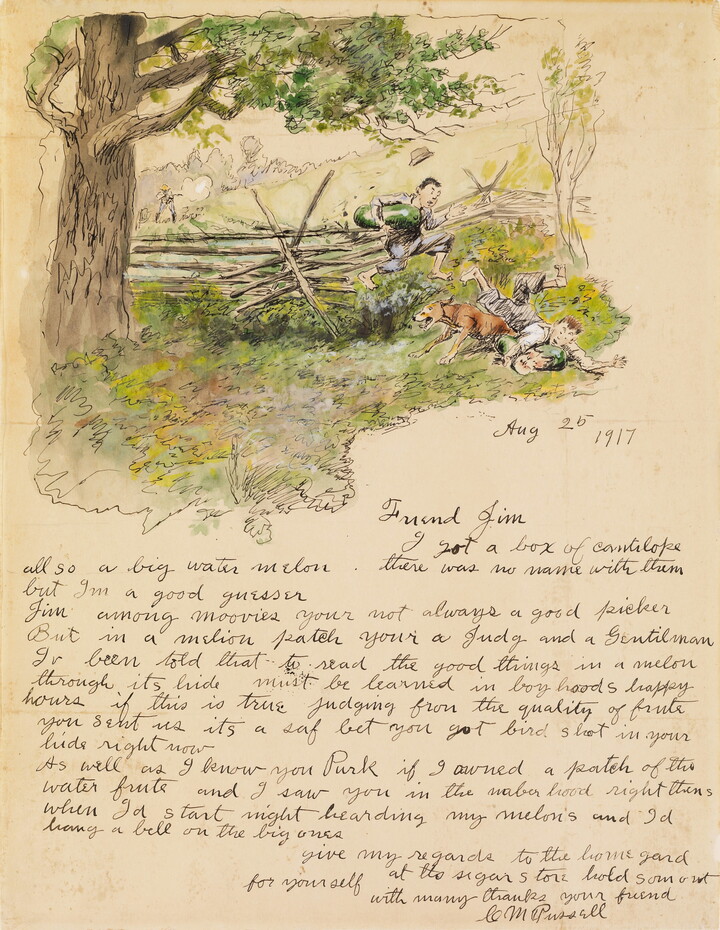 Aug 25 1917
Friend Jim
I got a box of cantilope
all so a big water melon . there was no name with them
but Im a good guesser
Jim among moovies your not always a good picker
But in a melion patch your a Judg and a Gentilman
Iv been told that to read the good things in a melon
through its hide must be learned in boy hoods happy
hours if this is true judging fron the quality of frute
you sent us its a saf bet you got bird shot in your
hide right now
As well as I know you Purk if I owned a patch of this
water frute and I saw you in the naber hood right thens
when Id start night hearding my melons and Id
hang a bell on the big ones
give my regards to the home gard
at the segar store hold som out
for yourself
with many thanks your friend
C M Russell